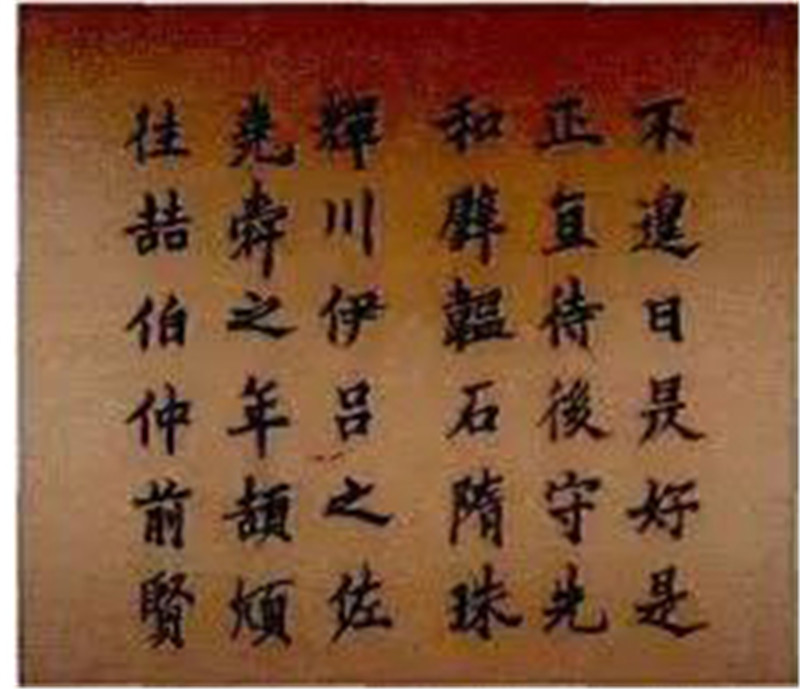 不遑日昃好是
正直待後守先
和璧韞石隋珠
輝川伊呂之佐
堯舜之年頡頏
往喆伯仲前賢